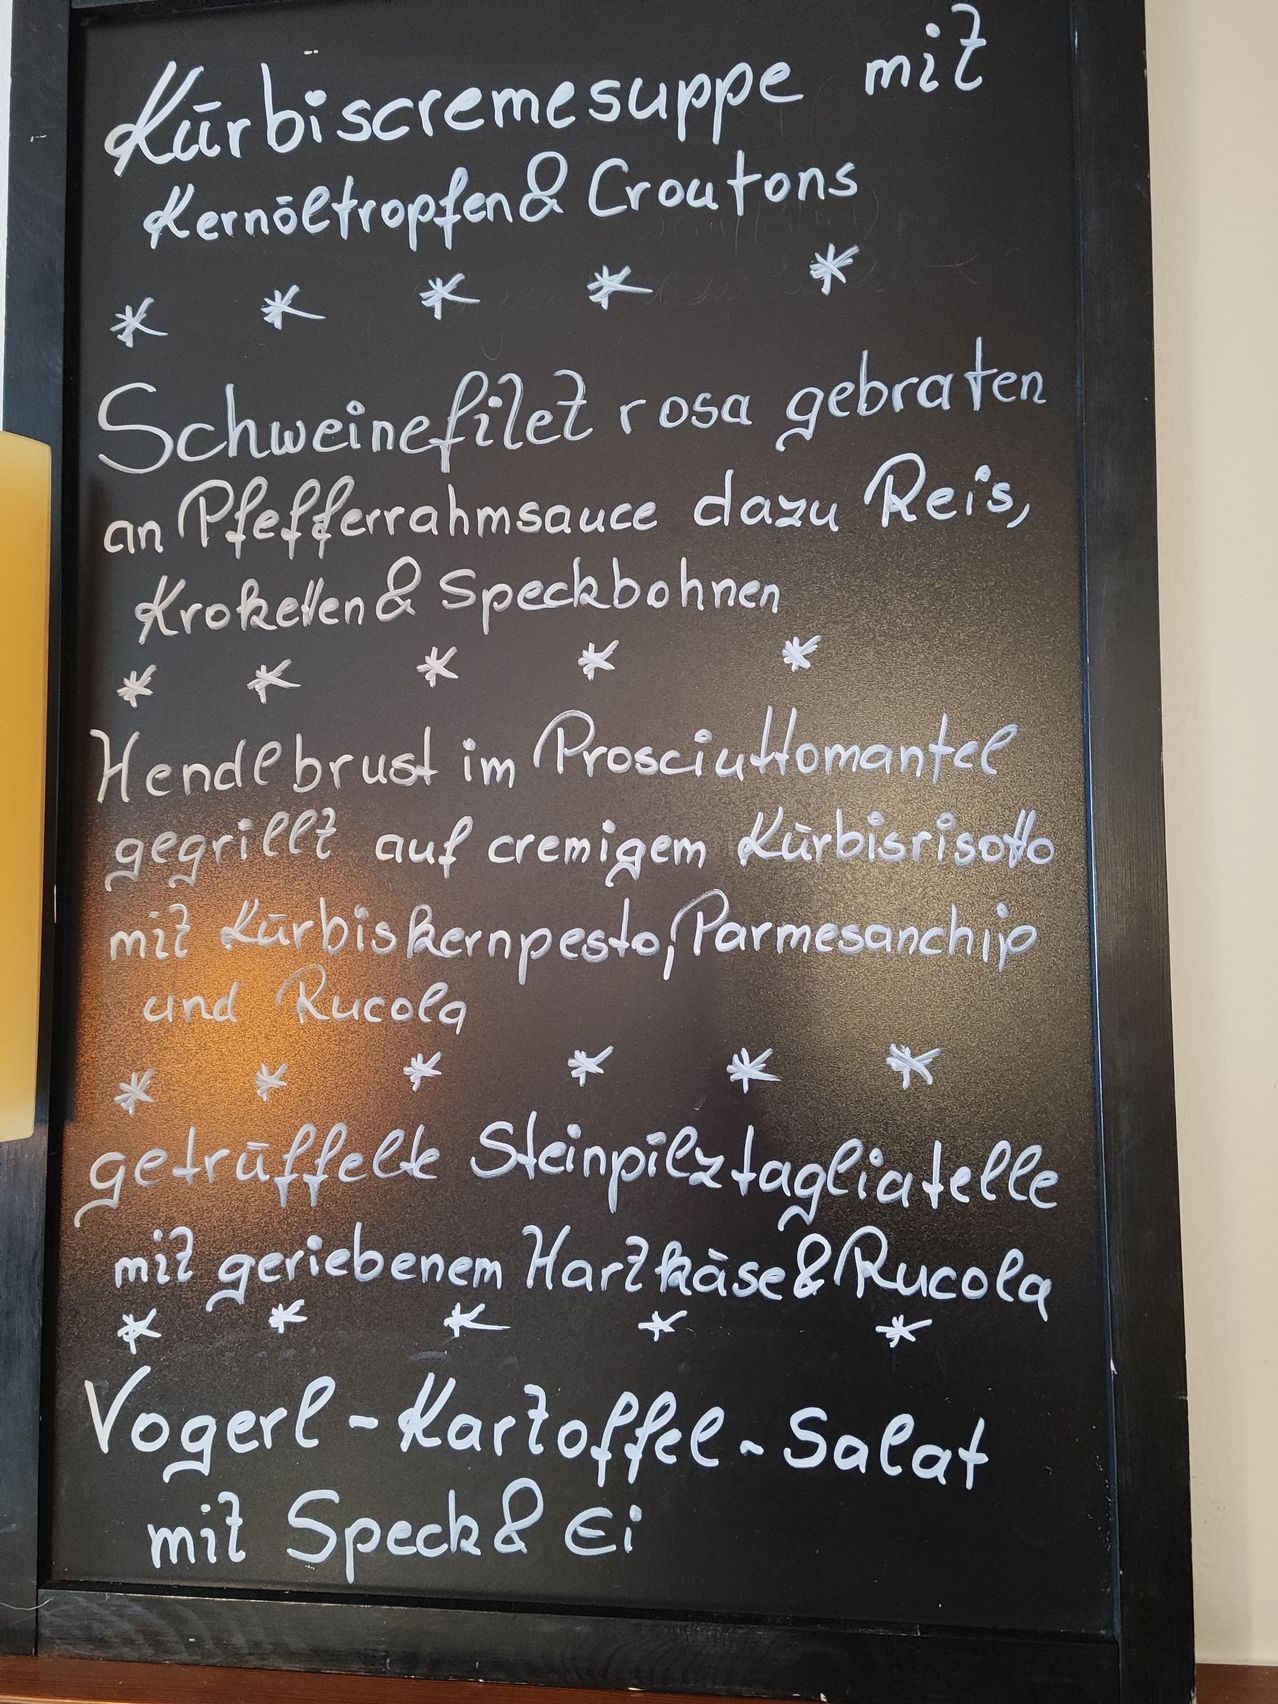 Kürbiscremesuppe mit
Kernöltropfen & Croutons
* * * * *
Schweinefilet rosa gebraten
an Pfefferrahmsauce dazu Reis,
Kroketten & Speckbohnen
* * * * *
Hendlbrust im Prosciuttomantel
gegrillt auf cremigem Kürbisrisotto
mit Kürbiskernpesto, Parmesanchip
und Rucola
* * * * * *
getrüffelte Steinpilztagliatelle
mit geriebenem Hartkäse & Rucola
* * * * *
Vogerl-Kartoffel-Salat
mit Speck & Ei